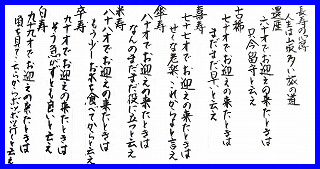 長寿の心得
人生は山坂多い旅の道
還暦
六十才でお迎えの来たときは
只今留守と云え
古稀
七十才でお迎えの来たときは
まだまだ早いと云え
喜寿
七十七才でお迎えの来たときは
せくな老楽これからよと云え
傘寿
八十才でお迎えの来たときは
なんのまだまだ役に立つと云え
米寿
八十八才でお迎えの来たときは
もう少しお米を食べてからと云え
卒寿
九十才でお迎えの来たときは
そう急がずともよいと云え
白寿
九十九才でお迎えの来たときは
頃を見てこちらからボツボツ行くと云え